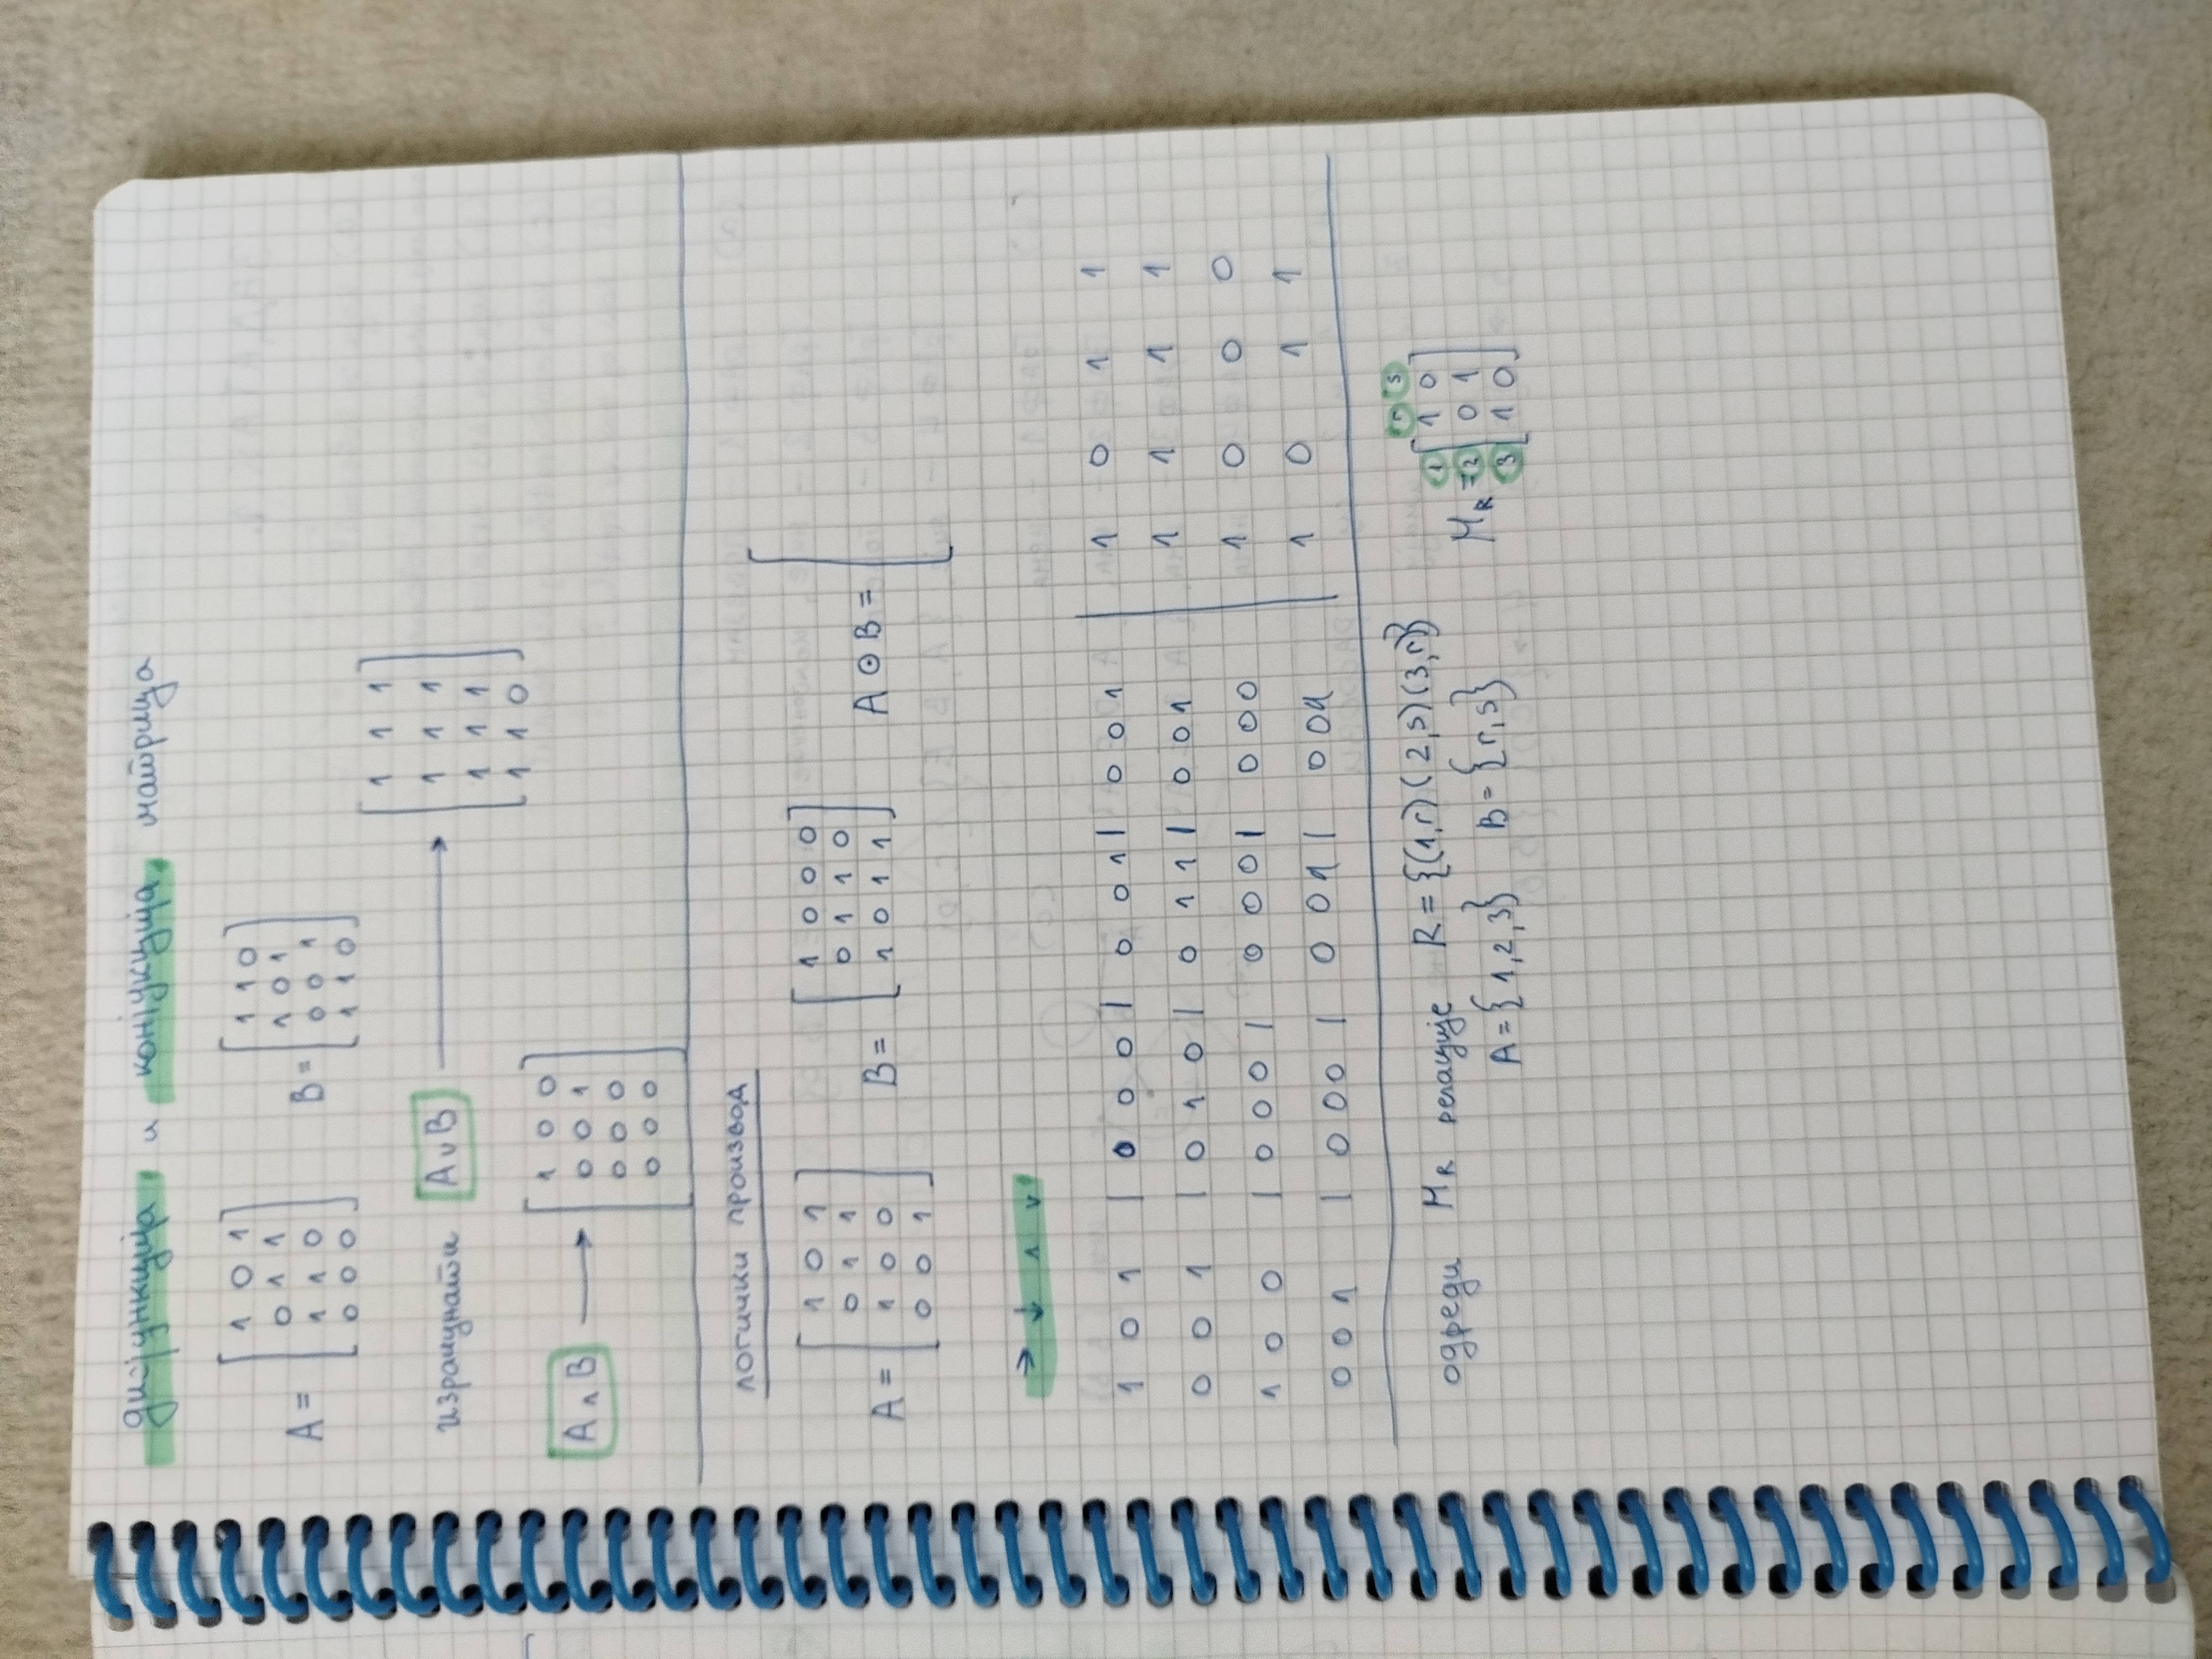 дисјункција и конјукција матрица
A = [ 1 0 1 B = [ 1 1 0
0 1 1 1 0 1
1 1 0 0 0 1
0 0 0 ] 1 1 0 ]
израчунати A ∨ B → [ 1 1 1
1 1 1
1 1 1
1 1 0 ]
A ∧ B → [ 1 0 0
0 0 1
0 0 0
0 0 0 ]
логички производ
A = [ 1 0 1 B = [ 1 0 0 0 A ⊙ B = [
0 1 1 0 1 1 0
1 0 0 1 0 1 1 ]
0 0 1 ]
→ ↓ ∧ ∨
1 0 1 | 0 0 0 | 0 0 1 | 0 0 1 | 1 0 1 1
0 0 1 | 0 1 0 | 0 1 1 | 0 0 1 | 1 1 1 1
1 0 0 | 0 0 0 | 0 0 0 | 0 0 0 | 1 0 0 0
0 0 1 | 0 0 0 | 0 0 1 | 0 0 1 | 1 0 1 1
одреди M_R релације R = {(1,r) (2,s) (3,r)}
A = {1,2,3} B = {r,s}
r s
M_R = 1 [ 1 0
2 0 1
3 1 0 ]